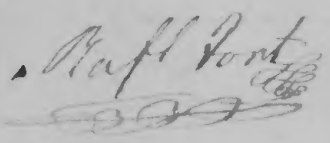 Rafl Font